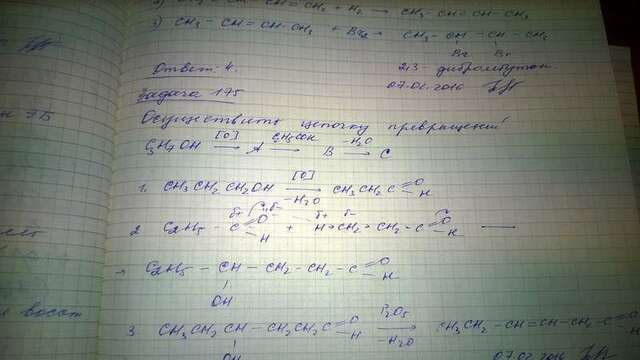 3) CH3 – CH = CH – CH3 + Br2 → CH3 – CH – CH – CH3
Br Br
Ответ: 4. 2,3 - дибромбутан.
07.02.2016
Задача 175
Осуществить цепочку превращений
C3H7OH [O] → A → B –H2O → C
1. CH3CH2CH2OH [O] → –H2O CH3CH2C =O H
2. C2H5 – C =O H + H → CH2 → CH2 – C =O H —
→ C2H5 – CH – CH2 – CH2 – C =O H
OH
3 CH3CH2CH – CH2CH2C =O H P2O5 → –H2O CH3CH2 – CH = CH – CH2 – C =O H
OH